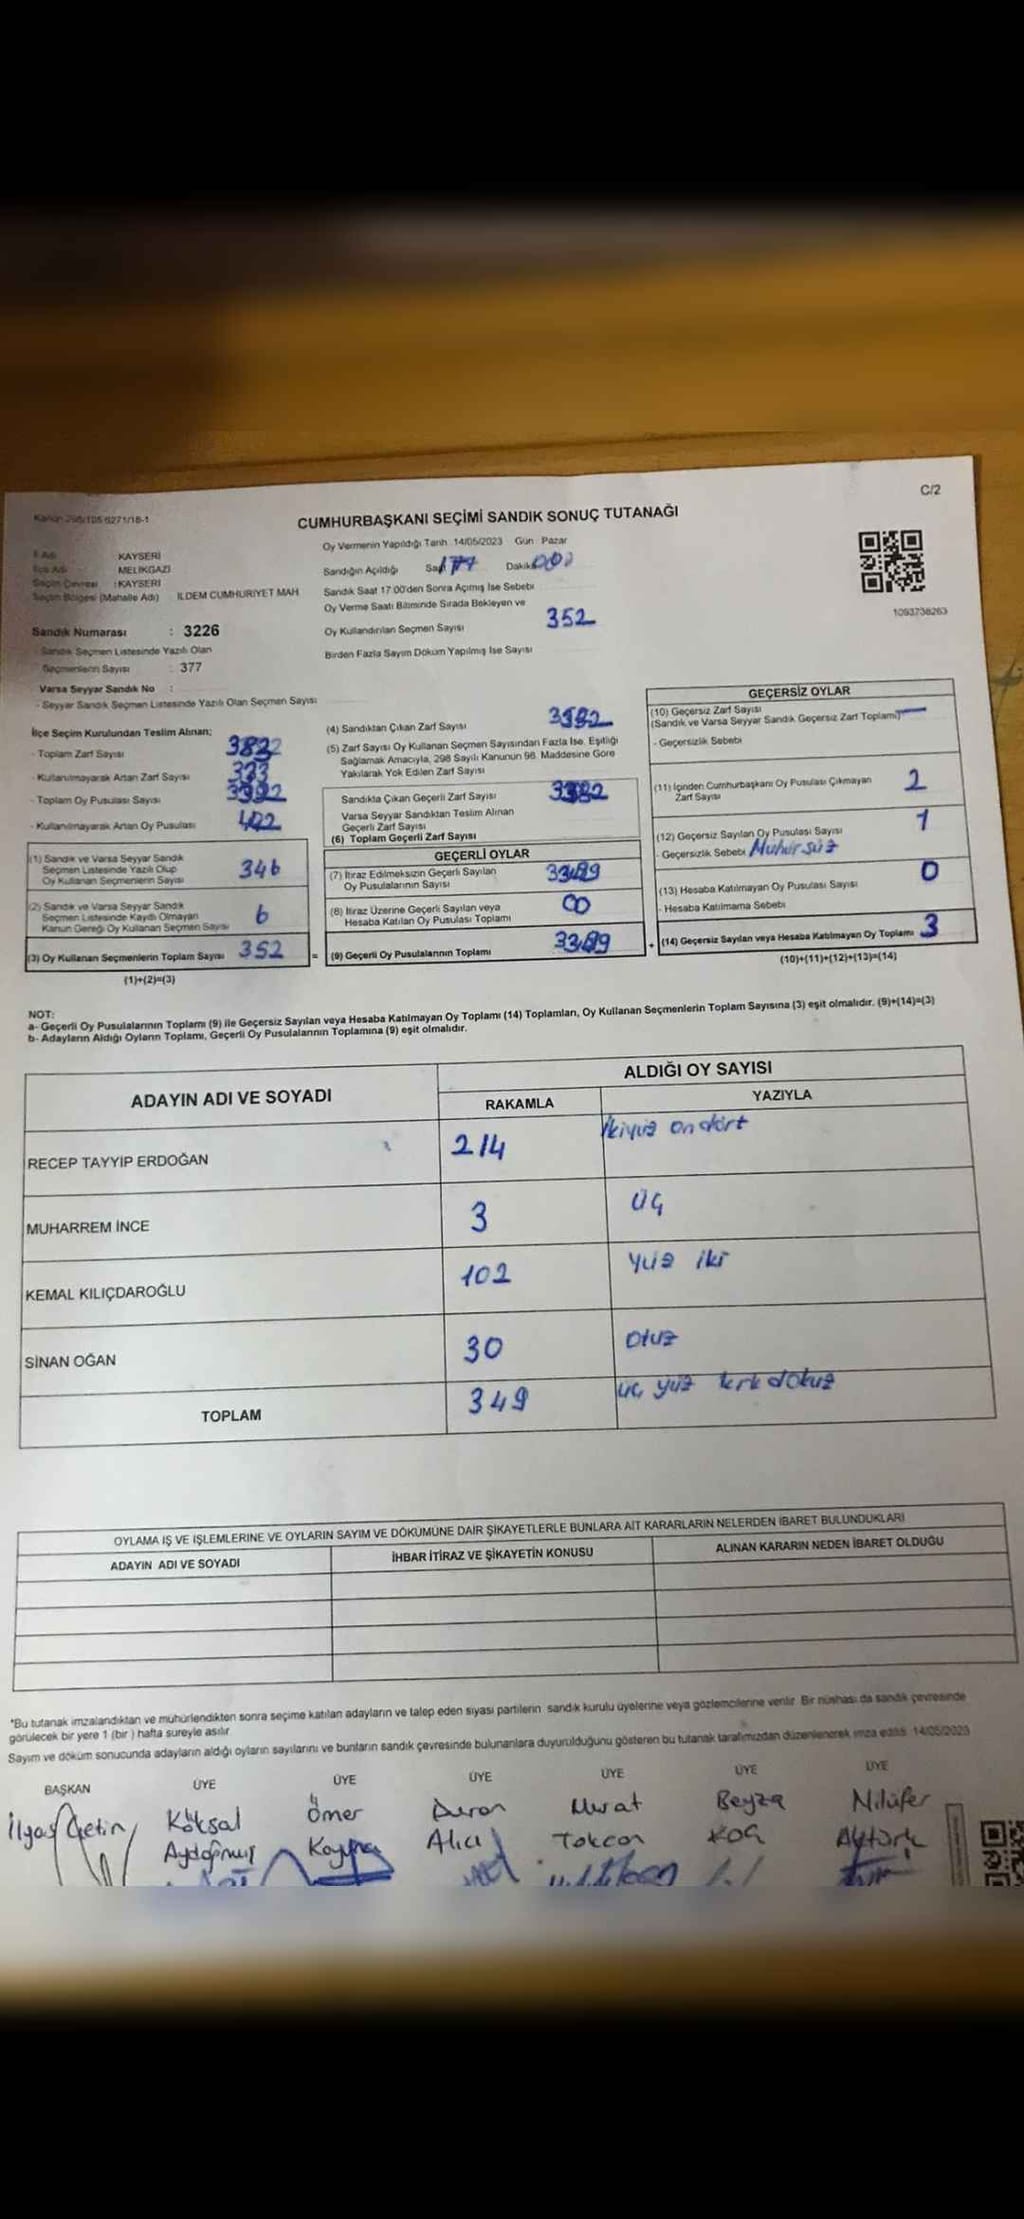 C/2
Kanun 298/105 6271/18-1
CUMHURBAŞKANI SEÇİMİ SANDIK SONUÇ TUTANAĞI
İl Adı KAYSERİ
İlçe Adı MELİKGAZİ
Seçim Çevresi : KAYSERİ
Seçim Bölgesi (Mahalle Adı) ILDEM CUMHURIYET MAH
Sandık Numarası : 3226
Sandık Seçmen Listesinde Yazılı Olan
Seçmenlerin Sayısı : 377
Varsa Seyyar Sandık No :
- Seyyar Sandık Seçmen Listesinde Yazılı Olan Seçmen Sayısı
Oy Vermenin Yapıldığı Tarih 14/05/2023 Gün Pazar
Sandığın Açıldığı Saat Dakika
Sandık Saat 17.00'den Sonra Açımış İse Sebebi
Oy Verme Saati Bitiminde Sırada Bekleyen ve
Oy Kullandırılan Seçmen Sayısı 352
Birden Fazla Sayım Döküm Yapılmış İse Sayısı
1093738263
İlçe Seçim Kurulundan Teslim Alınan;
- Toplam Zarf Sayısı
- Kullanılmayarak Artan Zarf Sayısı
- Toplam Oy Pusulası Sayısı
- Kullanılmayarak Artan Oy Pusulası
(1) Sandık ve Varsa Seyyar Sandık
Seçmen Listesinde Yazılı Olup
Oy Kullanan Seçmenlerin Sayısı 346
(2) Sandık ve Varsa Seyyar Sandık
Seçmen Listesinde Kaydı Olmayan
Kanun Gereği Oy Kullanan Seçmen Sayısı 6
(3) Oy Kullanan Seçmenlerin Toplam Sayısı 352
(1)+(2)=(3)
(4) Sandıktan Çıkan Zarf Sayısı
(5) Zarf Sayısı Oy Kullanan Seçmen Sayısından Fazla İse, Eşitliği
Sağlamak Amacıyla, 298 Sayılı Kanunun 98. Maddesine Göre
Yakılarak Yok Edilen Zarf Sayısı
Sandıkta Çıkan Geçerli Zarf Sayısı
Varsa Seyyar Sandıktan Teslim Alınan
Geçerli Zarf Sayısı
(6) Toplam Geçerli Zarf Sayısı
GEÇERLİ OYLAR
(7) İtiraz Edilmeksizin Geçerli Sayılan
Oy Pusulalarının Sayısı
(8) İtiraz Üzerine Geçerli Sayılan veya
Hesaba Katılan Oy Pusulası Toplamı
= (9) Geçerli Oy Pusulalarının Toplamı
GEÇERSİZ OYLAR
(10) Geçersiz Zarf Sayısı
(Sandık ve Varsa Seyyar Sandık Geçersiz Zarf Toplamı) —
- Geçersizlik Sebebi
(11) İçinden Cumhurbaşkanı Oy Pusulası Çıkmayan
Zarf Sayısı 2
(12) Geçersiz Sayılan Oy Pusulası Sayısı 1
- Geçersizlik Sebebi Mühürsüz
(13) Hesaba Katılmayan Oy Pusulası Sayısı 0
- Hesaba Katılmama Sebebi
+ (14) Geçersiz Sayılan veya Hesaba Katılmayan Oy Toplamı 3
(10)+(11)+(12)+(13)=(14)
NOT:
a- Geçerli Oy Pusulalarının Toplamı (9) ile Geçersiz Sayılan veya Hesaba Katılmayan Oy Toplamı (14) Toplamları, Oy Kullanan Seçmenlerin Toplam Sayısına (3) eşit olmalıdır. (9)+(14)=(3)
b- Adayların Aldığı Oyların Toplamı, Geçerli Oy Pusulalarının Toplamına (9) eşit olmalıdır.
ADAYIN ADI VE SOYADI
ALDIĞI OY SAYISI
RAKAMLA YAZIYLA
RECEP TAYYİP ERDOĞAN 214 ikiyüz ondört
MUHARREM İNCE 3 üç
KEMAL KILIÇDAROĞLU 102 yüz iki
SİNAN OĞAN 30 otuz
TOPLAM 349 üç yüz kırk dokuz
OYLAMA İŞ VE İŞLEMLERİNE VE OYLARIN SAYIM VE DÖKÜMÜNE DAİR ŞİKAYETLERLE BUNLARA AİT KARARLARIN NELERDEN İBARET BULUNDUKLARI
ADAYIN ADI VE SOYADI İHBAR İTİRAZ VE ŞİKAYETİN KONUSU ALINAN KARARIN NEDEN İBARET OLDUĞU
*Bu tutanak imzalandıktan ve mühürlendikten sonra seçime katılan adayların ve talep eden siyasi partilerin sandık kurulu üyelerine veya gözlemcilerine verilir. Bir nüshası da sandık çevresinde
görülecek bir yere 1 (bir) hafta süreyle asılır.
Sayım ve döküm sonucunda adayların aldığı oyların sayılarını ve bunların sandık çevresinde bulunanlara duyurulduğunu gösteren bu tutanak tarafımızdan düzenlenerek imza edildi. 14/05/2023
BAŞKAN ÜYE ÜYE ÜYE ÜYE ÜYE ÜYE
İlyas Çetin Köksal Ömer Duran Murat Beyza Nilüfer
Aydoğmuş Alıcı Tokcan Koç Aytürk